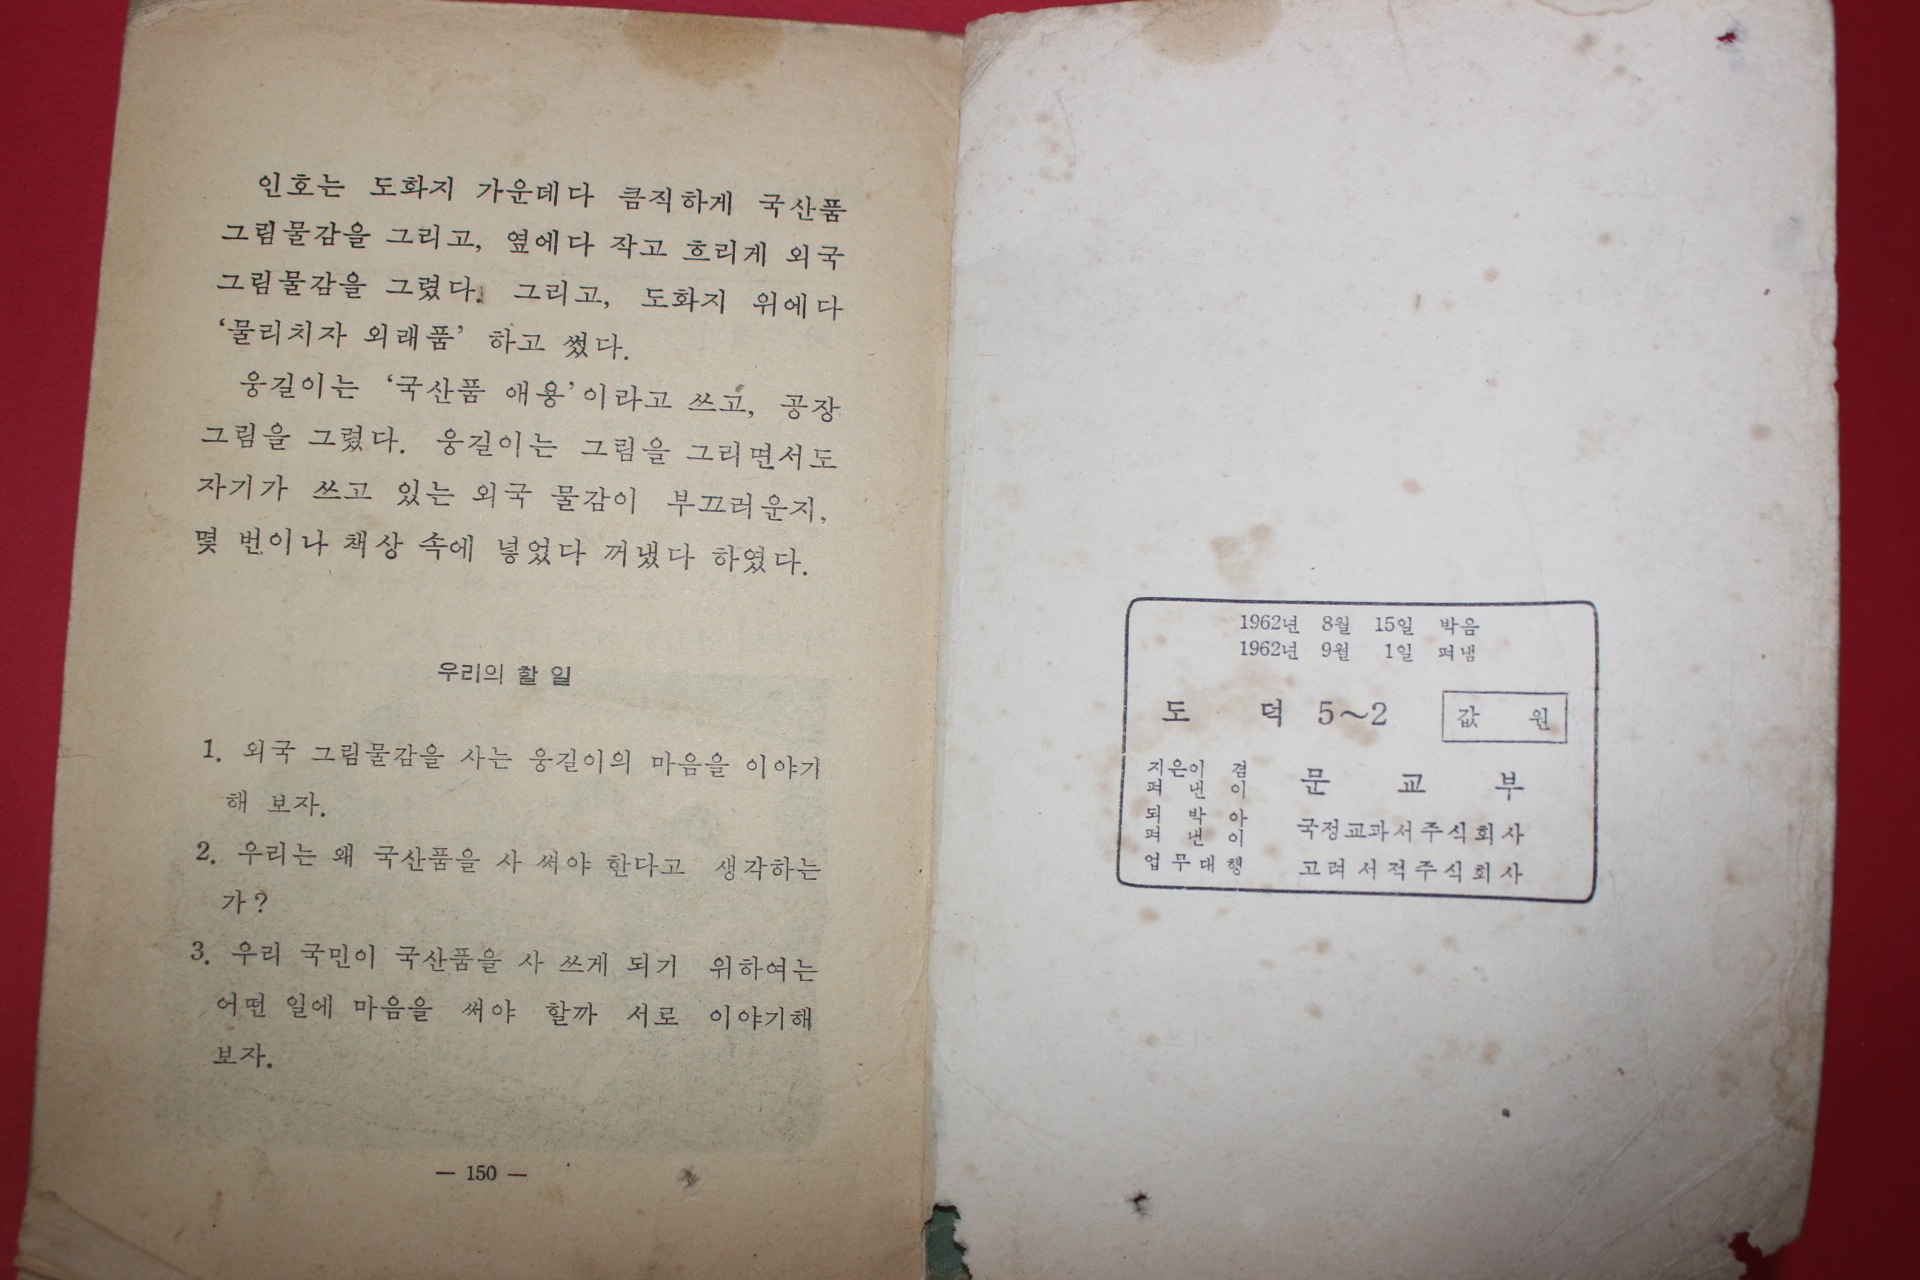 인호는 도화지 가운데다 큼직하게 국산품
그림물감을 그리고, 옆에다 작고 흐리게 외국
그림물감을 그렸다. 그리고, 도화지 위에다
‘물리치자 외래품’ 하고 썼다.
웅길이는 ‘국산품 애용’이라고 쓰고, 공장
그림을 그렸다. 웅길이는 그림을 그리면서도
자기가 쓰고 있는 외국 물감이 부끄러운지,
몇 번이나 책상 속에 넣었다 꺼냈다 하였다.
우리의 할 일
1. 외국 그림물감을 사는 웅길이의 마음을 이야기
해 보자.
2. 우리는 왜 국산품을 사 써야 한다고 생각하는
가?
3. 우리 국민이 국산품을 사 쓰게 되기 위하여는
어떤 일에 마음을 써야 할까 서로 이야기해
보자.
— 150 —
1962년 8월 15일 박음
1962년 9월 1일 펴냄
도 덕 5~2 값 원
지은이 겸
펴 낸 이 문 교 부
되 박 아
펴 낸 이 국정교과서주식회사
업무대행 고려서적주식회사